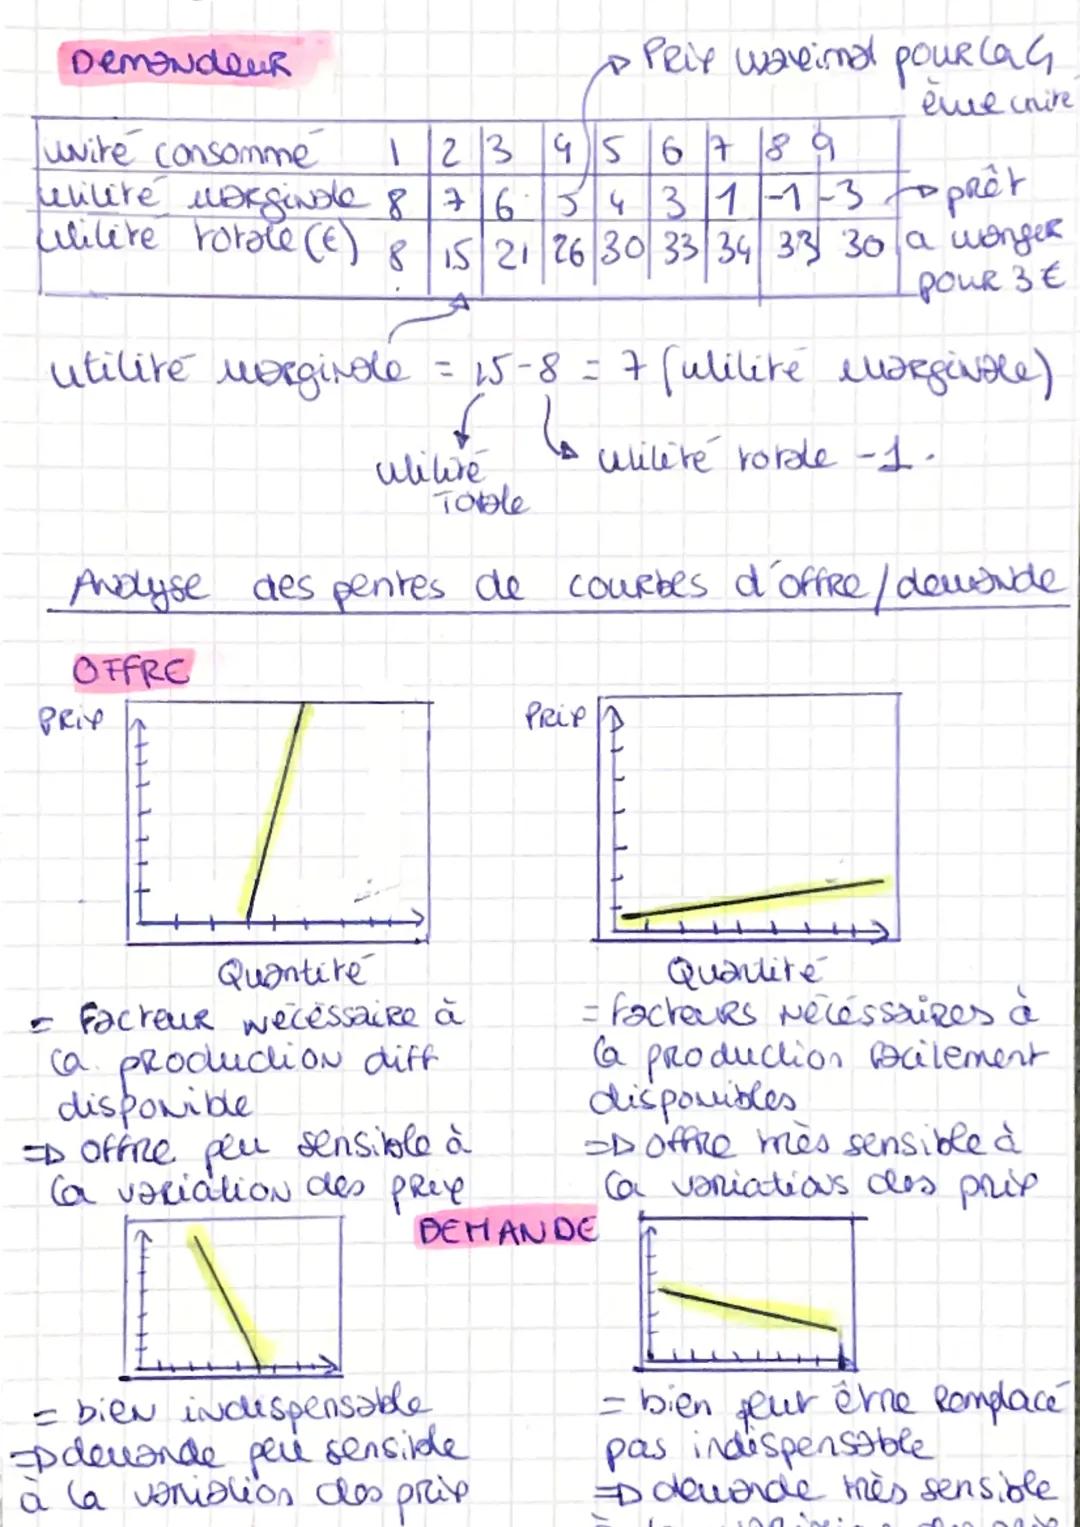 Demandeur
Prix maximal pour la 4
ème unité
unité consommé 1 2 3 4 5 6 7 8 9
utilité marginale 8 7 6 5 4 3 1 -1 -3
prêt
utilité totale (€) 8 15 21 26 30 33 34 33 30
a manger
pour 3 €
utilité marginale = 15-8 = 7 (utilité marginale)
utilité
Totale
utilité totale -1.
Analyse des pentes de courbes d'offre/demande
OFFRE
PRIX
PRIX
Quantité
Quantité
= facteur nécéssaire à
la production diff
disponible
=> offre peu sensible à
la variation des prix
= facteurs nécéssaires à
la production facilement
disponibles
=> offre très sensible à
la variations des prix
DEMANDE
= bien indispensable
=> demande peu sensible
à la variation des prix
= bien peut être remplacé
pas indispensable
=> demande très sensible